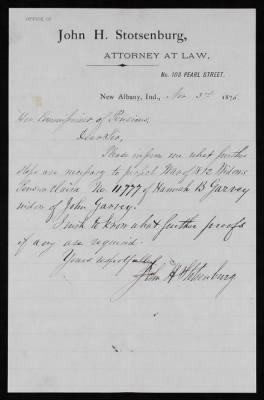 OFFICE OF
John H. Stotsenburg,
ATTORNEY AT LAW,
No. 103 PEARL STREET.
New Albany, Ind., Nov 3rd 1876.
Hon. Commissioner of Pensions,
Dear Sir,
Please inform me what further
steps are necessary to perfect War of 1812 Widows
Pension Claim No. 11777 of Hannah B Garvey
widow of John Garvey.
I wish to know what further proofs
if any are required.
Yours respectfully
John H Stotsenburg